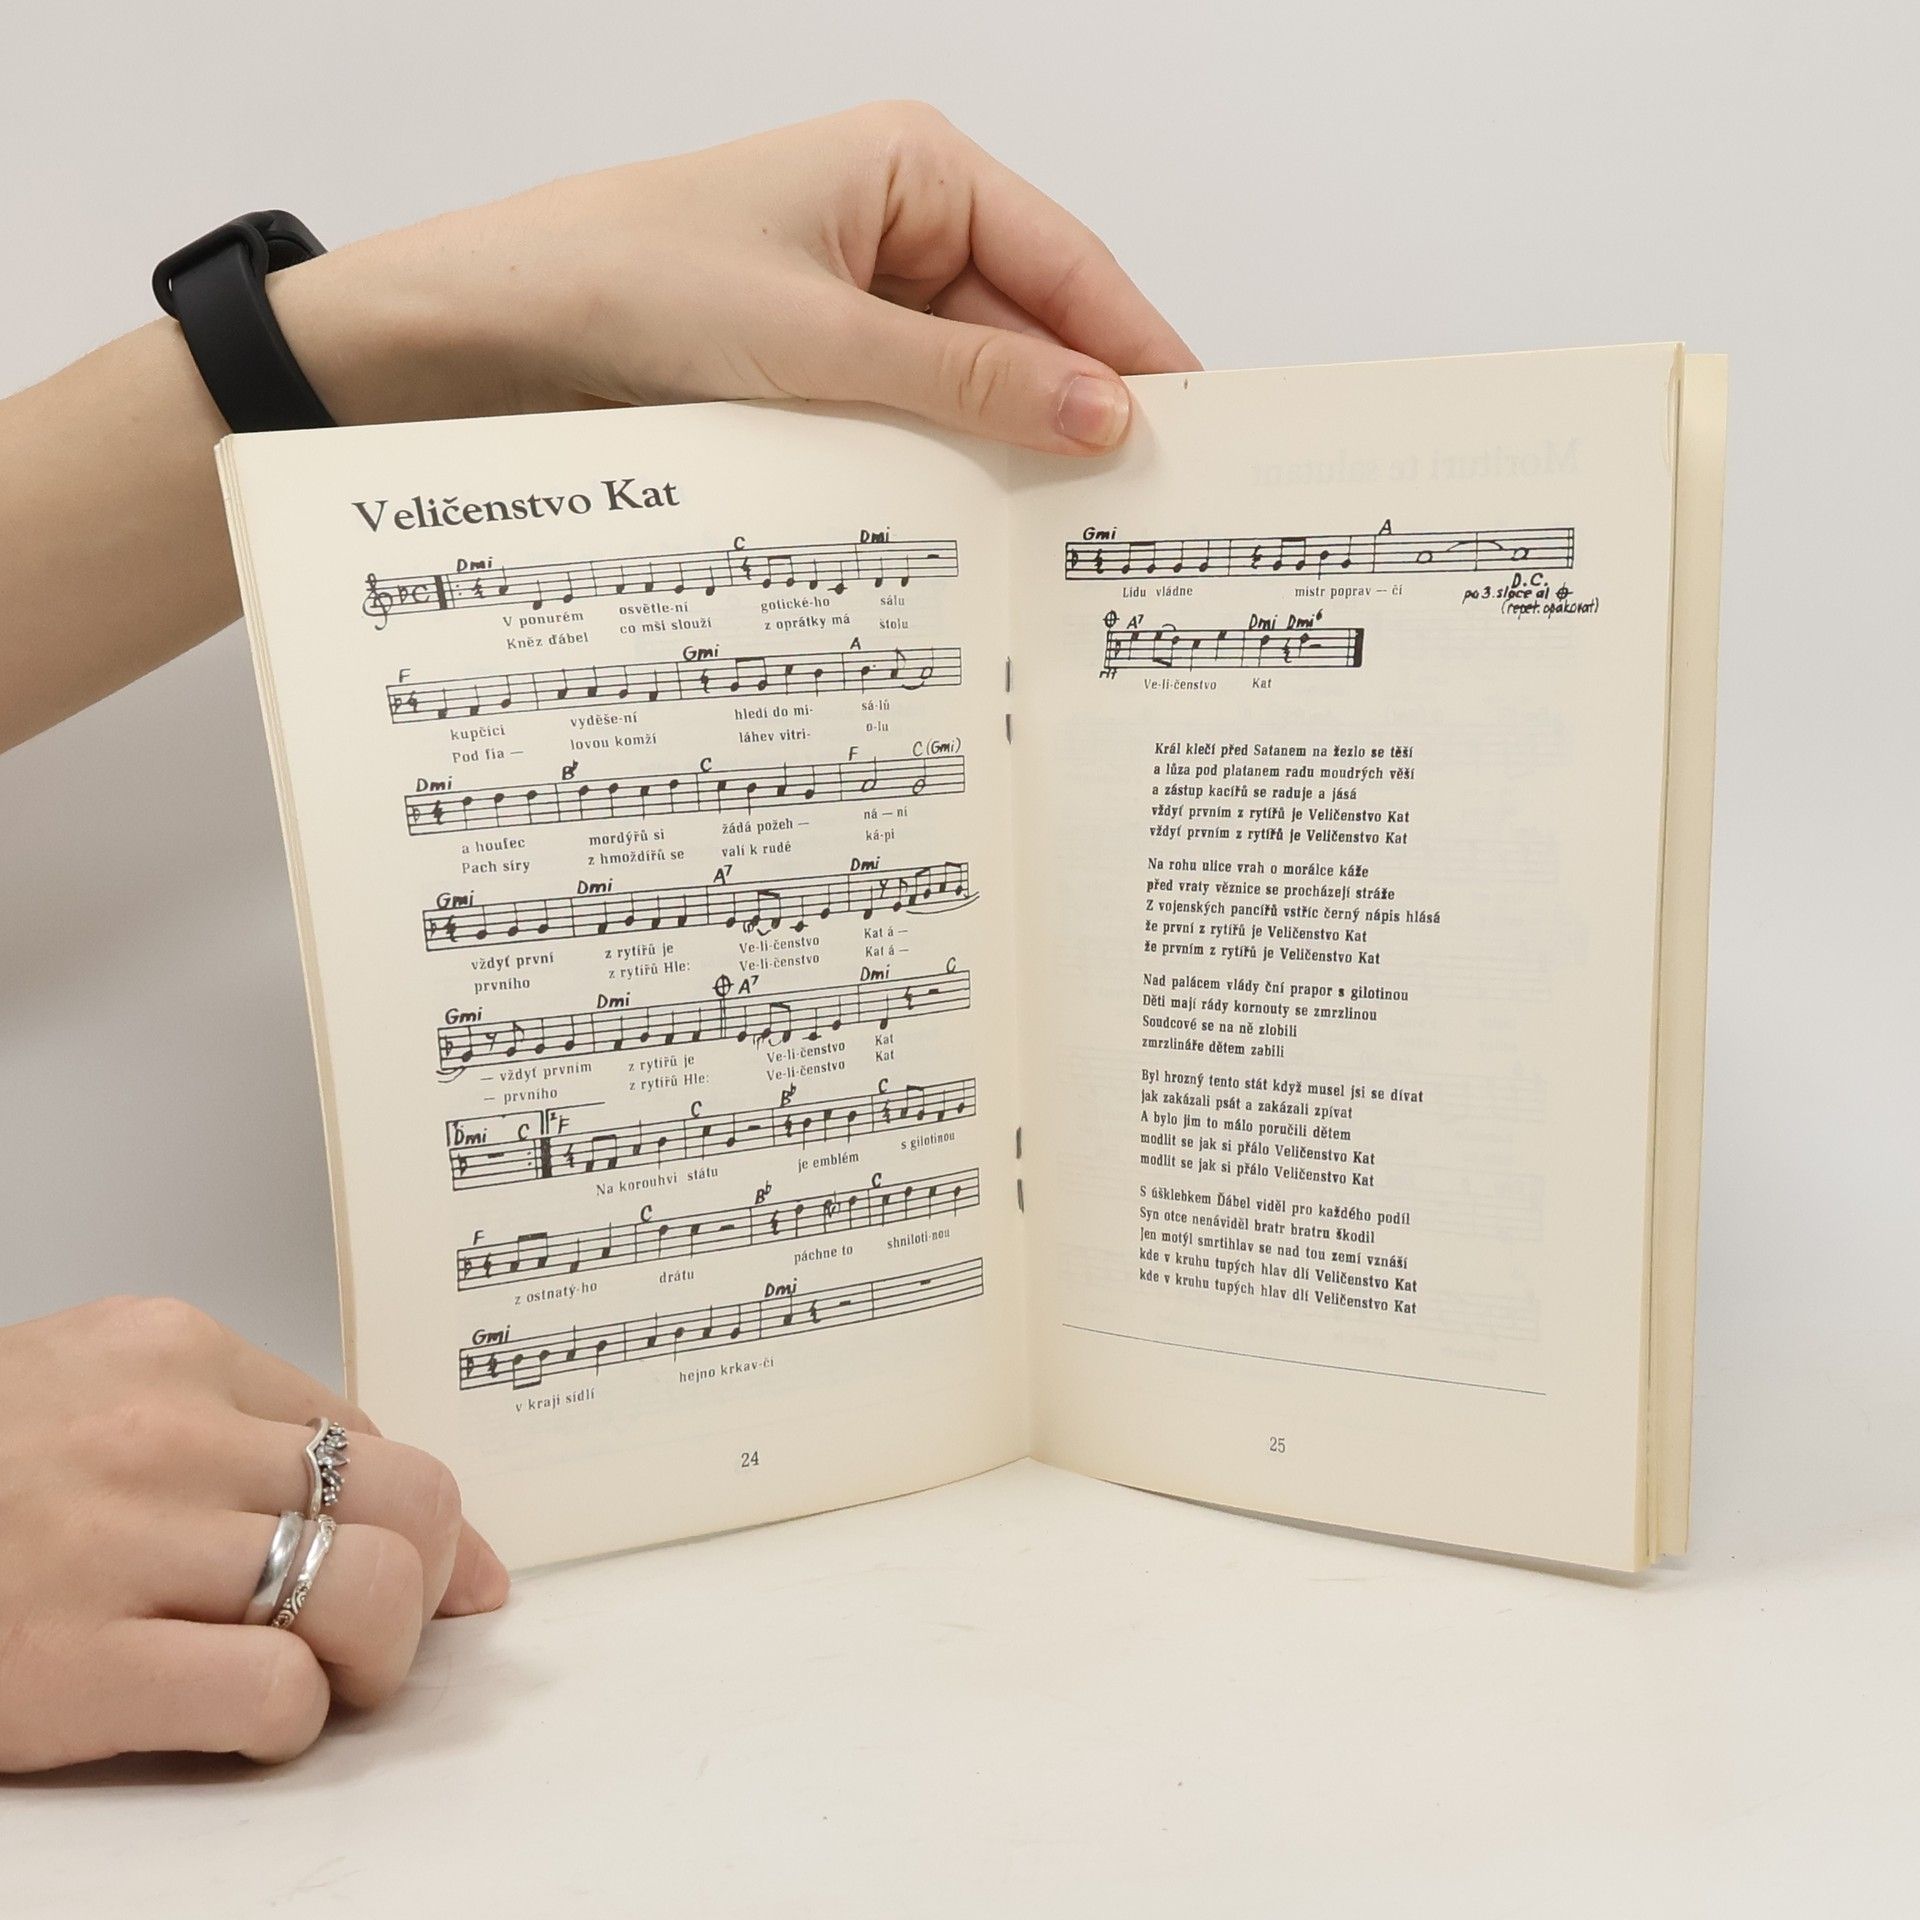 Veličenstvo Kat
Dmi C Dmi
V ponurém osvětle-ní gotické-ho sálu
Kněz ďábel co mši slouží z oprátky má štolu
F Gmi A
kupčíci vyděše-ní hledí do mi- sá-lů
Pod fia — lovou komží láhev vitri- o-lu
Dmi B♭ C F C (Gmi)
a houfec mordýřů si žádá požeh — ná — ní
Pach síry z hmoždířů se valí k rudé ká-pi
Gmi Dmi A7 Dmi
vždyť první z rytířů je Ve-li-čenstvo Kat á —
prvního z rytířů Hle: Ve-li-čenstvo Kat á —
Gmi Dmi A7 Dmi C
— vždyť prvním z rytířů je Ve-li-čenstvo Kat
— prvního z rytířů Hle: Ve-li-čenstvo Kat
1. Dmi C 2. F C B♭ C
Na korouhvi státu je emblém s gilotinou
F C B♭ C
z ostnatý-ho drátu páchne to shniloti-nou
Gmi Dmi
v kraji sídlí hejno krkav-čí
24
Morituri te salutant
Gmi A
Lidu vládne mistr poprav — čí
D.C.
po 3. sloce al
(repet. opakovat)
A7 Dmi Dmi6
rit
Ve-li-čenstvo Kat
Král klečí před Satanem na žezlo se těší
a lůza pod platanem radu moudrých věší
a zástup kacířů se raduje a jásá
vždyť prvním z rytířů je Veličenstvo Kat
vždyť prvním z rytířů je Veličenstvo Kat
Na rohu ulice vrah o morálce káže
před vraty věznice se procházejí stráže
Z vojenských pancířů vstříc černý nápis hlásá
že první z rytířů je Veličenstvo Kat
že prvním z rytířů je Veličenstvo Kat
Nad palácem vlády ční prapor s gilotinou
Děti mají rády kornouty se zmrzlinou
Soudcové se na ně zlobili
zmrzlináře dětem zabili
Byl hrozný tento stát když musel jsi se dívat
jak zakázali psát a zakázali zpívat
A bylo jim to málo poručili dětem
modlit se jak si přálo Veličenstvo Kat
modlit se jak si přálo Veličenstvo Kat
S úšklebkem Ďábel viděl pro každého podíl
Syn otce nenáviděl bratr bratru škodil
Jen motýl smrtihlav se nad tou zemí vznáší
kde v kruhu tupých hlav dlí Veličenstvo Kat
kde v kruhu tupých hlav dlí Veličenstvo Kat
25